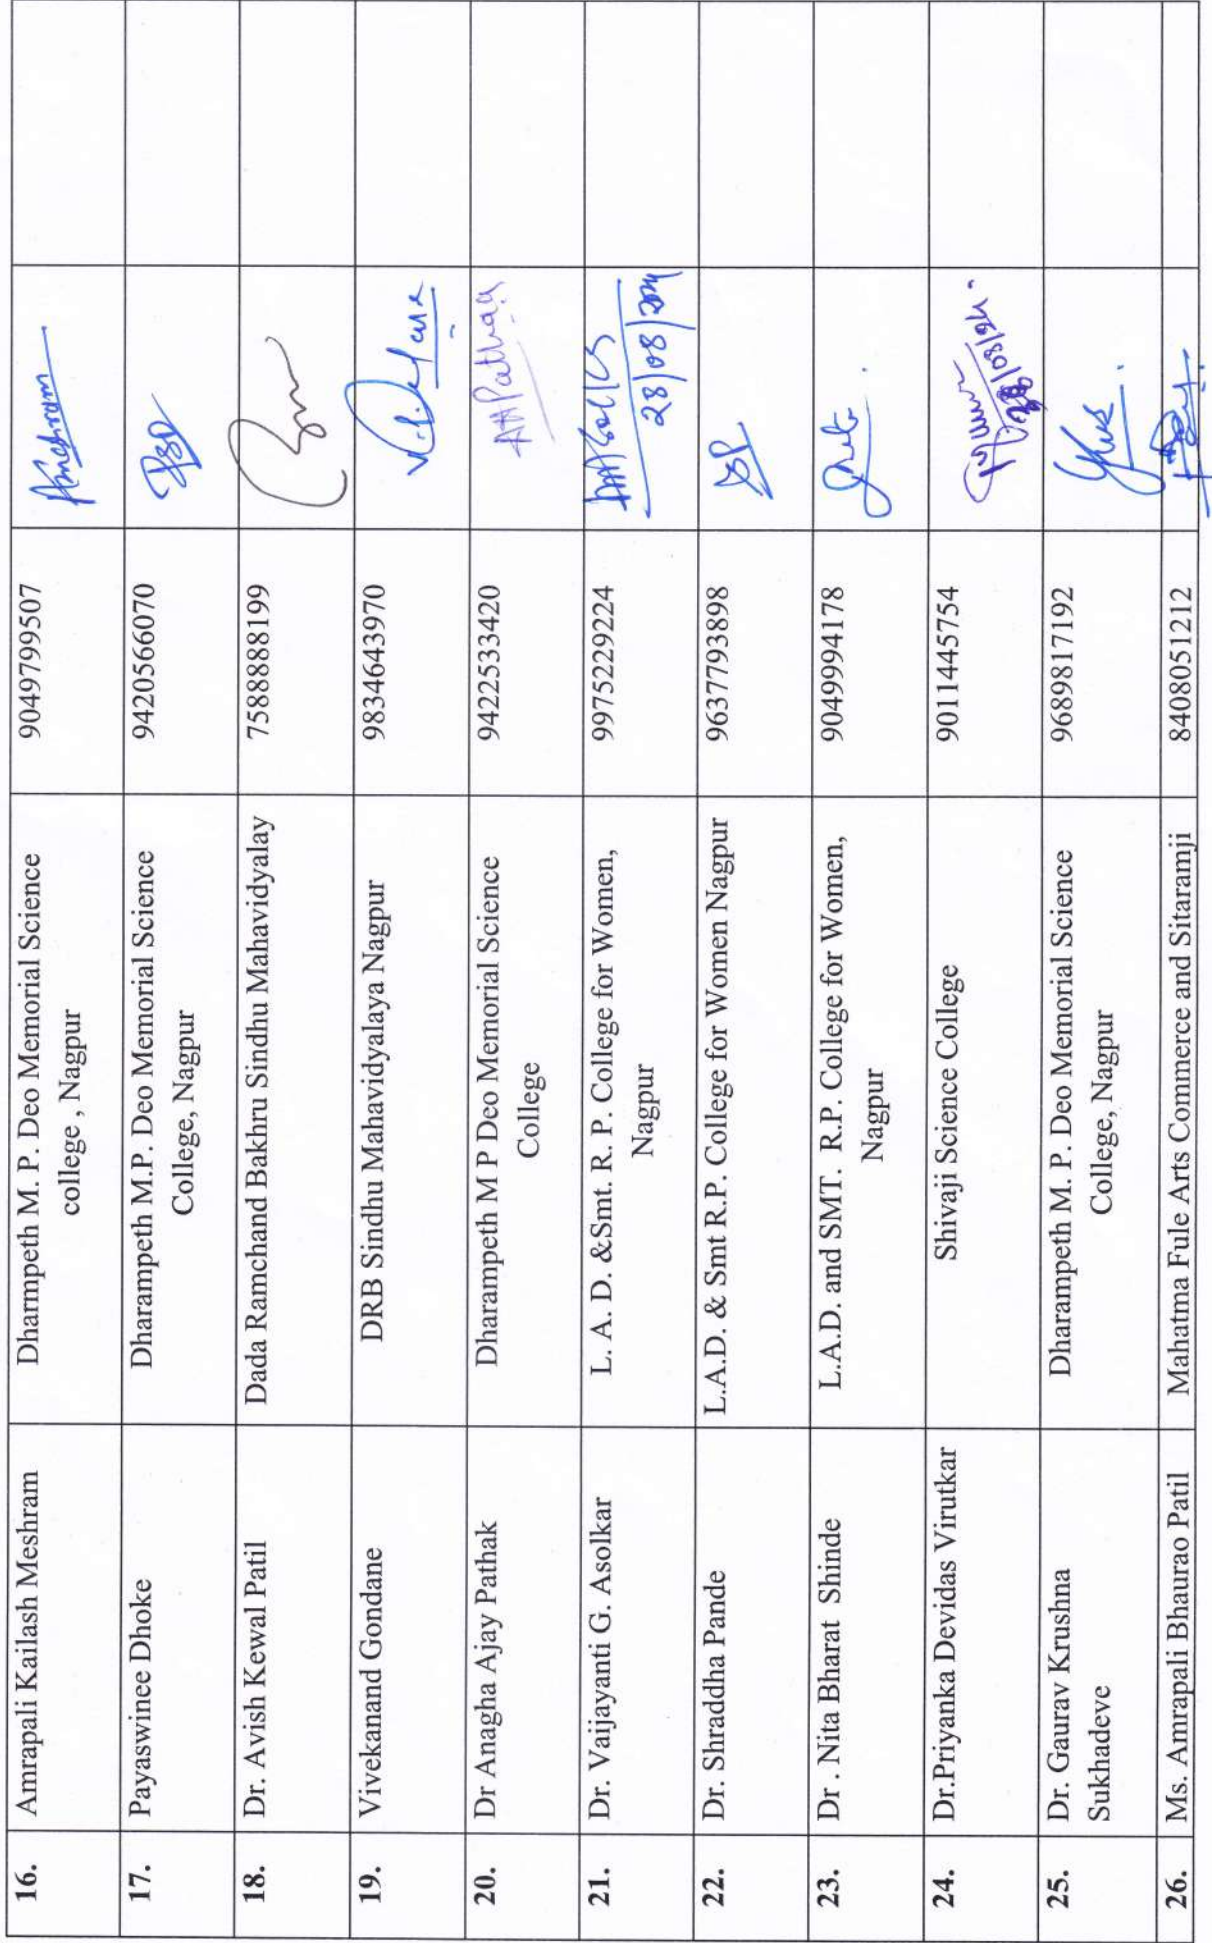 16.
Amrapali Kailash Meshram
Dharmpeth M. P. Deo Memorial Science
college , Nagpur
9049799507
17.
Payaswinee Dhoke
Dharampeth M.P. Deo Memorial Science
College, Nagpur
9420566070
18.
Dr. Avish Kewal Patil
Dada Ramchand Bakhru Sindhu Mahavidyalay
7588888199
19.
Vivekanand Gondane
DRB Sindhu Mahavidyalaya Nagpur
9834643970
20.
Dr Anagha Ajay Pathak
Dharampeth M P Deo Memorial Science
College
9422533420
AAPathak
21.
Dr. Vaijayanti G. Asolkar
L. A. D. &Smt. R. P. College for Women,
Nagpur
9975229224
28/08/2024
22.
Dr. Shraddha Pande
L.A.D. & Smt R.P. College for Women Nagpur
9637793898
SP
23.
Dr . Nita Bharat Shinde
L.A.D. and SMT. R.P. College for Women,
Nagpur
9049994178
24.
Dr.Priyanka Devidas Virutkar
Shivaji Science College
9011445754
28/08/24.
25.
Dr. Gaurav Krushna
Sukhadeve
Dharampeth M. P. Deo Memorial Science
College, Nagpur
9689817192
26.
Ms. Amrapali Bhaurao Patil
Mahatma Fule Arts Commerce and Sitaramji
8408051212